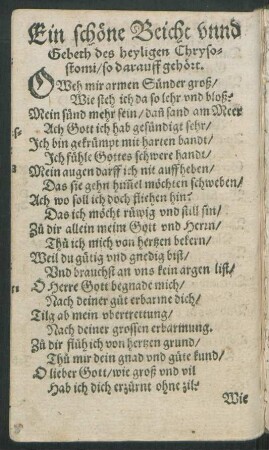 Ein schöne Beicht vnnd
Gebeth des heyligen Chryso-
stomi/ so darauff gehört.
O Weh mir armen Sünder groß/
Wie steh ich da so lehr vnd bloß?
Mein sünd mehr sein/ dañ sand am Meer
Ach Gott ich hab gesündigt sehr/
Ich bin gekrümpt mit harten bandt/
Ich fühle Gottes schwere handt/
Mein augen darff ich nit auffheben/
Das sie gehn him̃el möchten schweben/
Ach wo soll ich doch fliehen hin?
Das ich möcht rüwig vnd still sin/
Zů dir allein meim Gott vnd Herrn/
Thů ich mich von hertzen bekern/
Weil du gütig vnd gnedig bist/
Vnd brauchst an vns kein argen list/
O Herre Gott begnade mich/
Nach deiner güt erbarme dich/
Tilg ab mein vbertrettung/
Nach deiner grossen erbarmung.
Zů dir flüh ich von hertzen grund/
Thů mir dein gnad vnd güte kund/
O lieber Gott/ wie groß vnd vil
Hab ich dich erzürnt ohne zil?
Wie